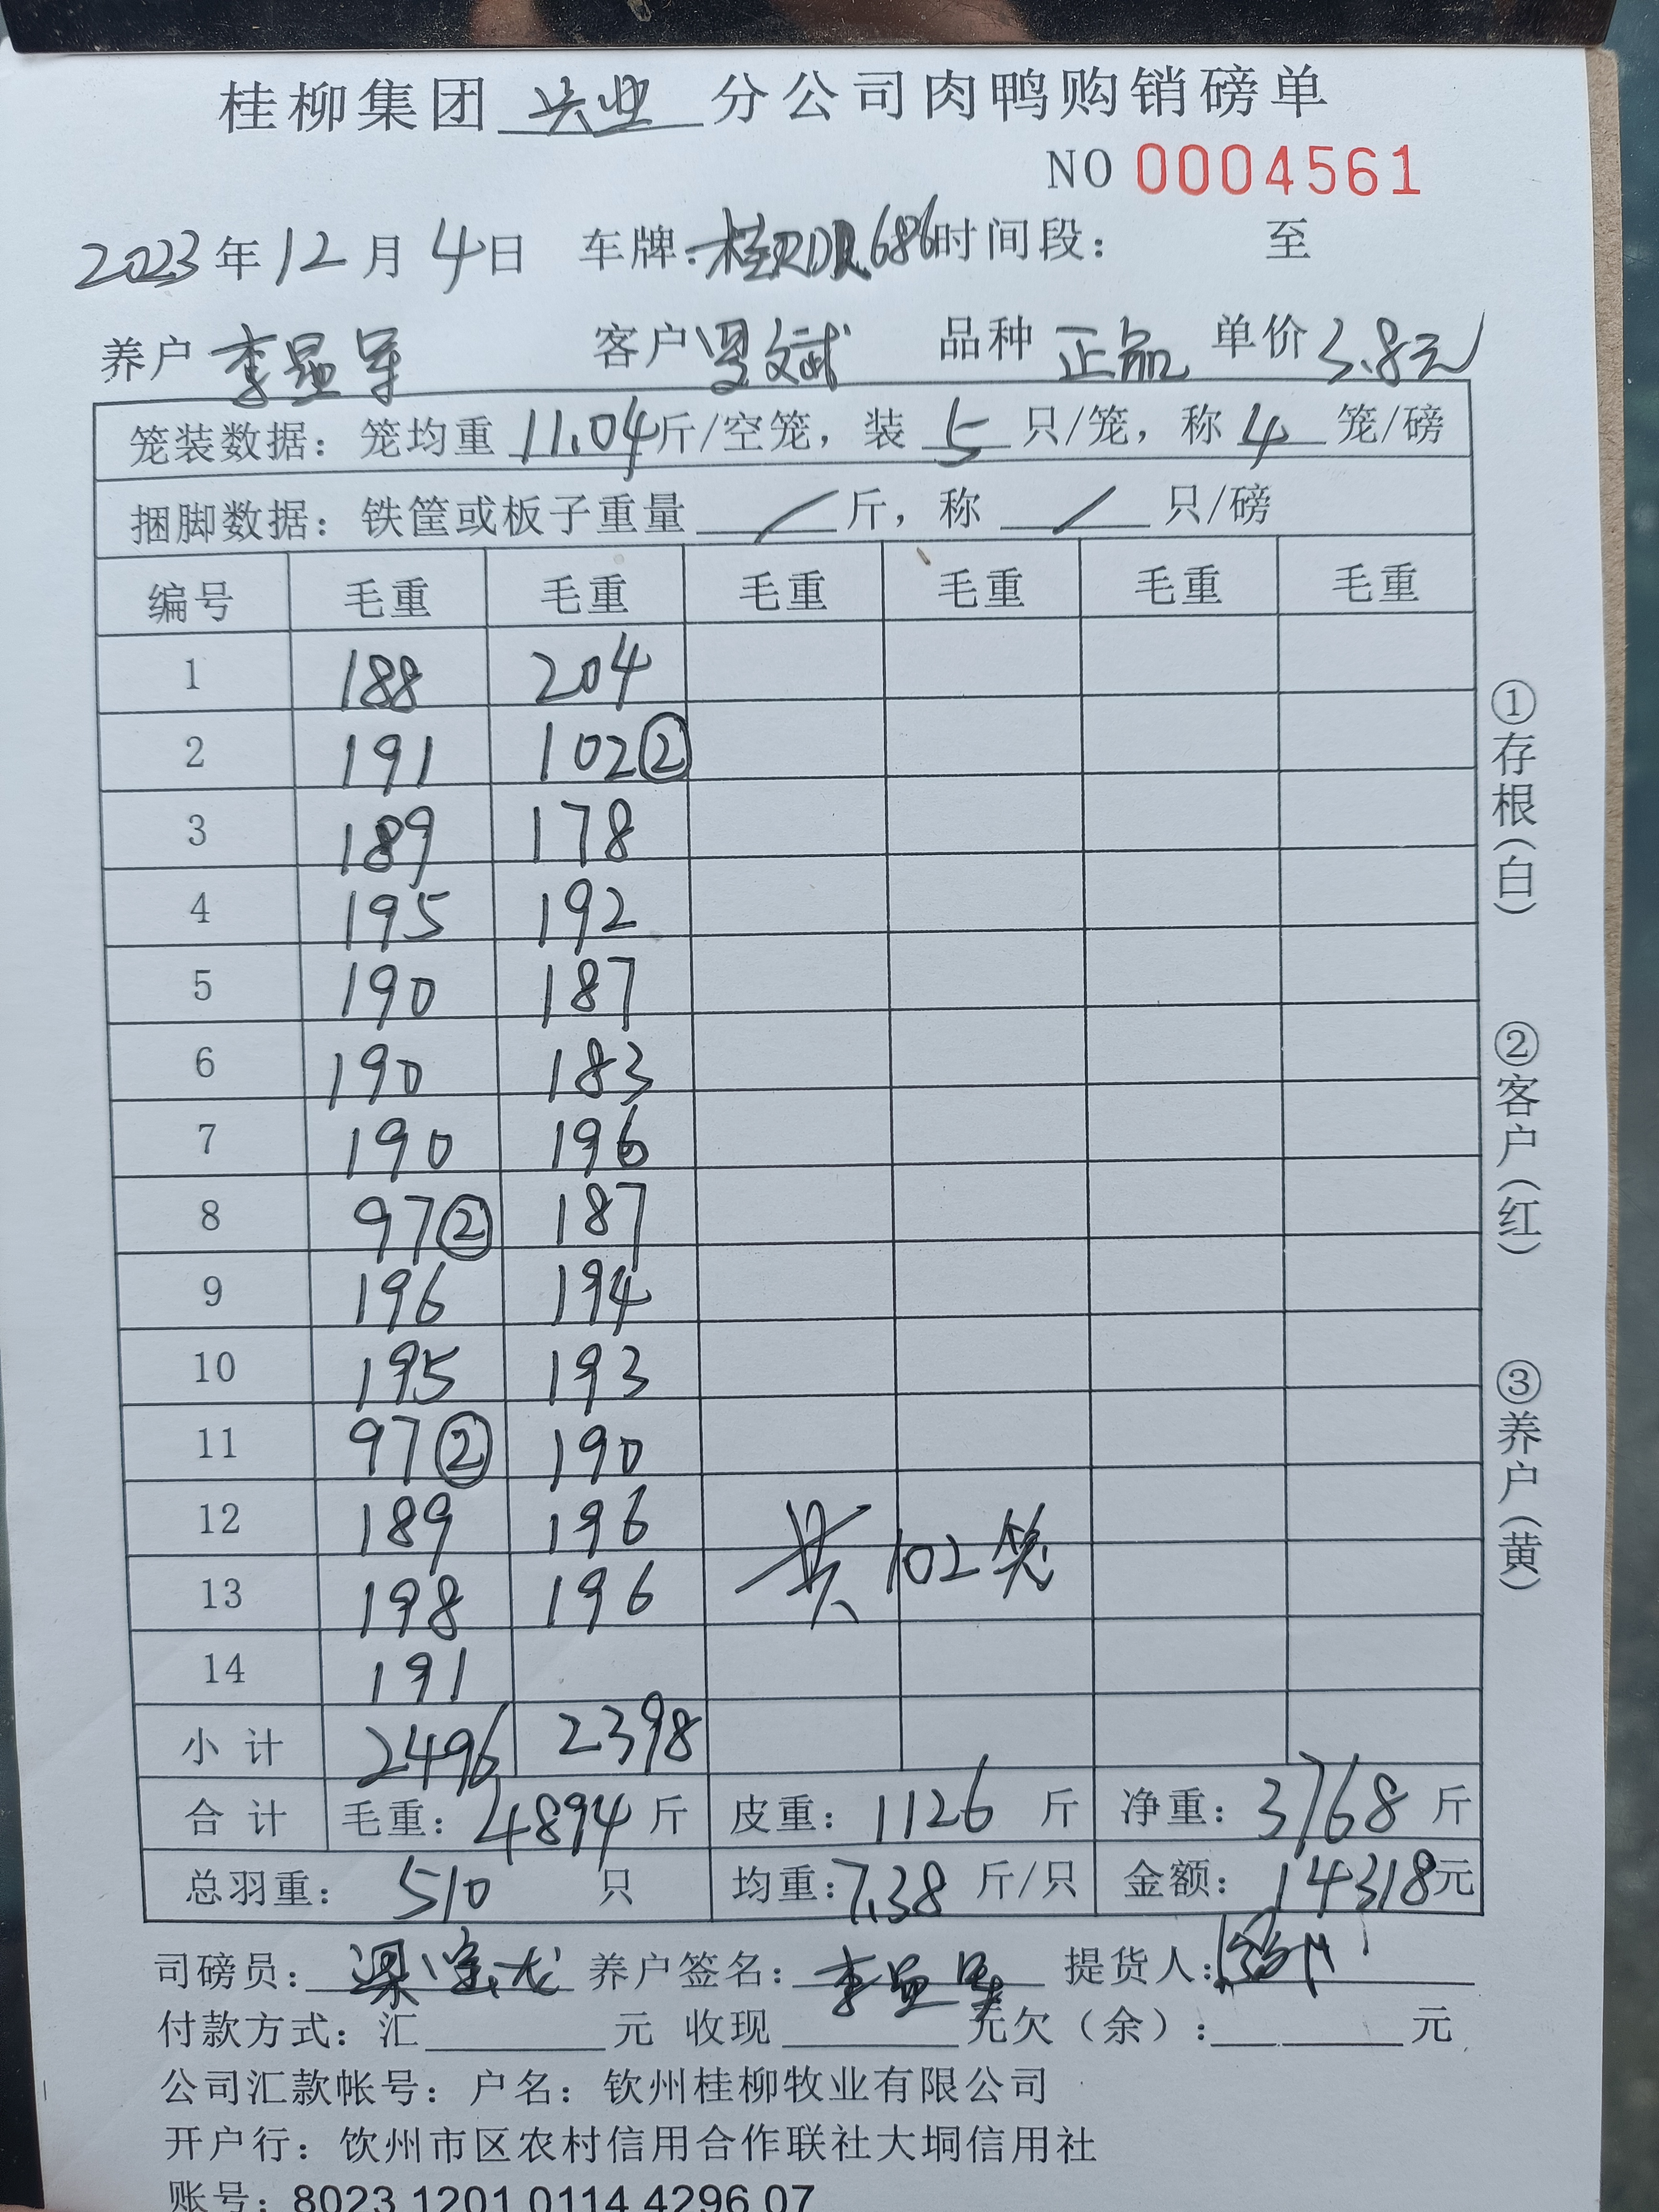 桂柳集团 兴业 分公司肉鸭购销磅单
NO 0004561
2023年12月4日 车牌: 桂 686时间段： 至
养户 李显军 客户 文斌 品种 正品 单价 3.8元
笼装数据：笼均重 11.04斤/空笼，装 5 只/笼，称 4 笼/磅
捆脚数据：铁筐或板子重量 / 斤，称 / 只/磅
编号 毛重 毛重 毛重 毛重 毛重 毛重
1 188 204
2 191 102②
3 189 178
4 195 192
5 190 187
6 190 183
7 190 196
8 97② 187
9 196 194
10 195 193
11 97② 190
12 189 196
13 198 196 共102笼
14 191
小计 2496 2398
合计 毛重：4894斤 皮重：1126斤 净重：3768斤
总羽重：510只 均重：7.38斤/只 金额：14318元
司磅员： 梁宝龙 养户签名：李显军 提货人：
付款方式：汇 元 收现 元欠（余）： 元
公司汇款帐号：户名：钦州桂柳牧业有限公司
开户行：钦州市区农村信用合作联社大垌信用社
账号：8023 1201 0114 4296 07
①存根（白）
②客户（红）
③养户（黄）